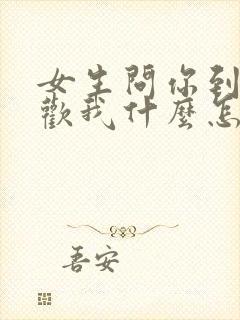 女生問你到
歡我什麼怎
吾安